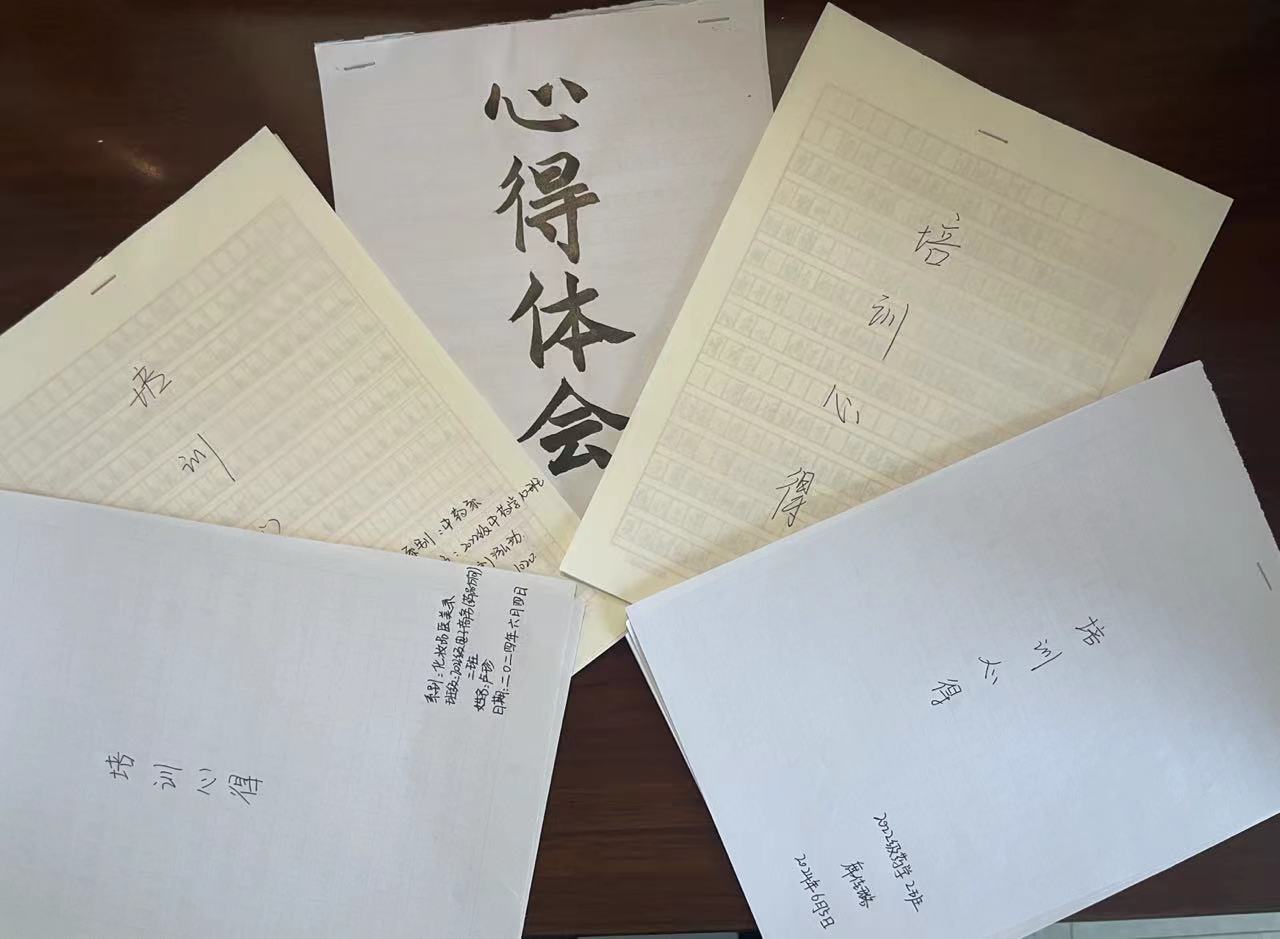 心得体会
培训心得
培训
系别：中药系
2022级中药学
1020
系别：化妆品医美系
班级：2022级电子商务(药品方向)
二班
姓名：卢珍
日期：二〇二四年六月四日
培训心得
培训心得
2022级药学2班
2024年6月5日